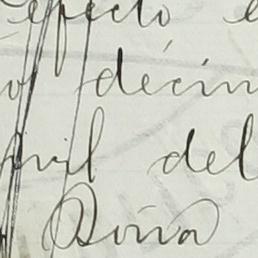 efecto e
o décim
vil del
Doña